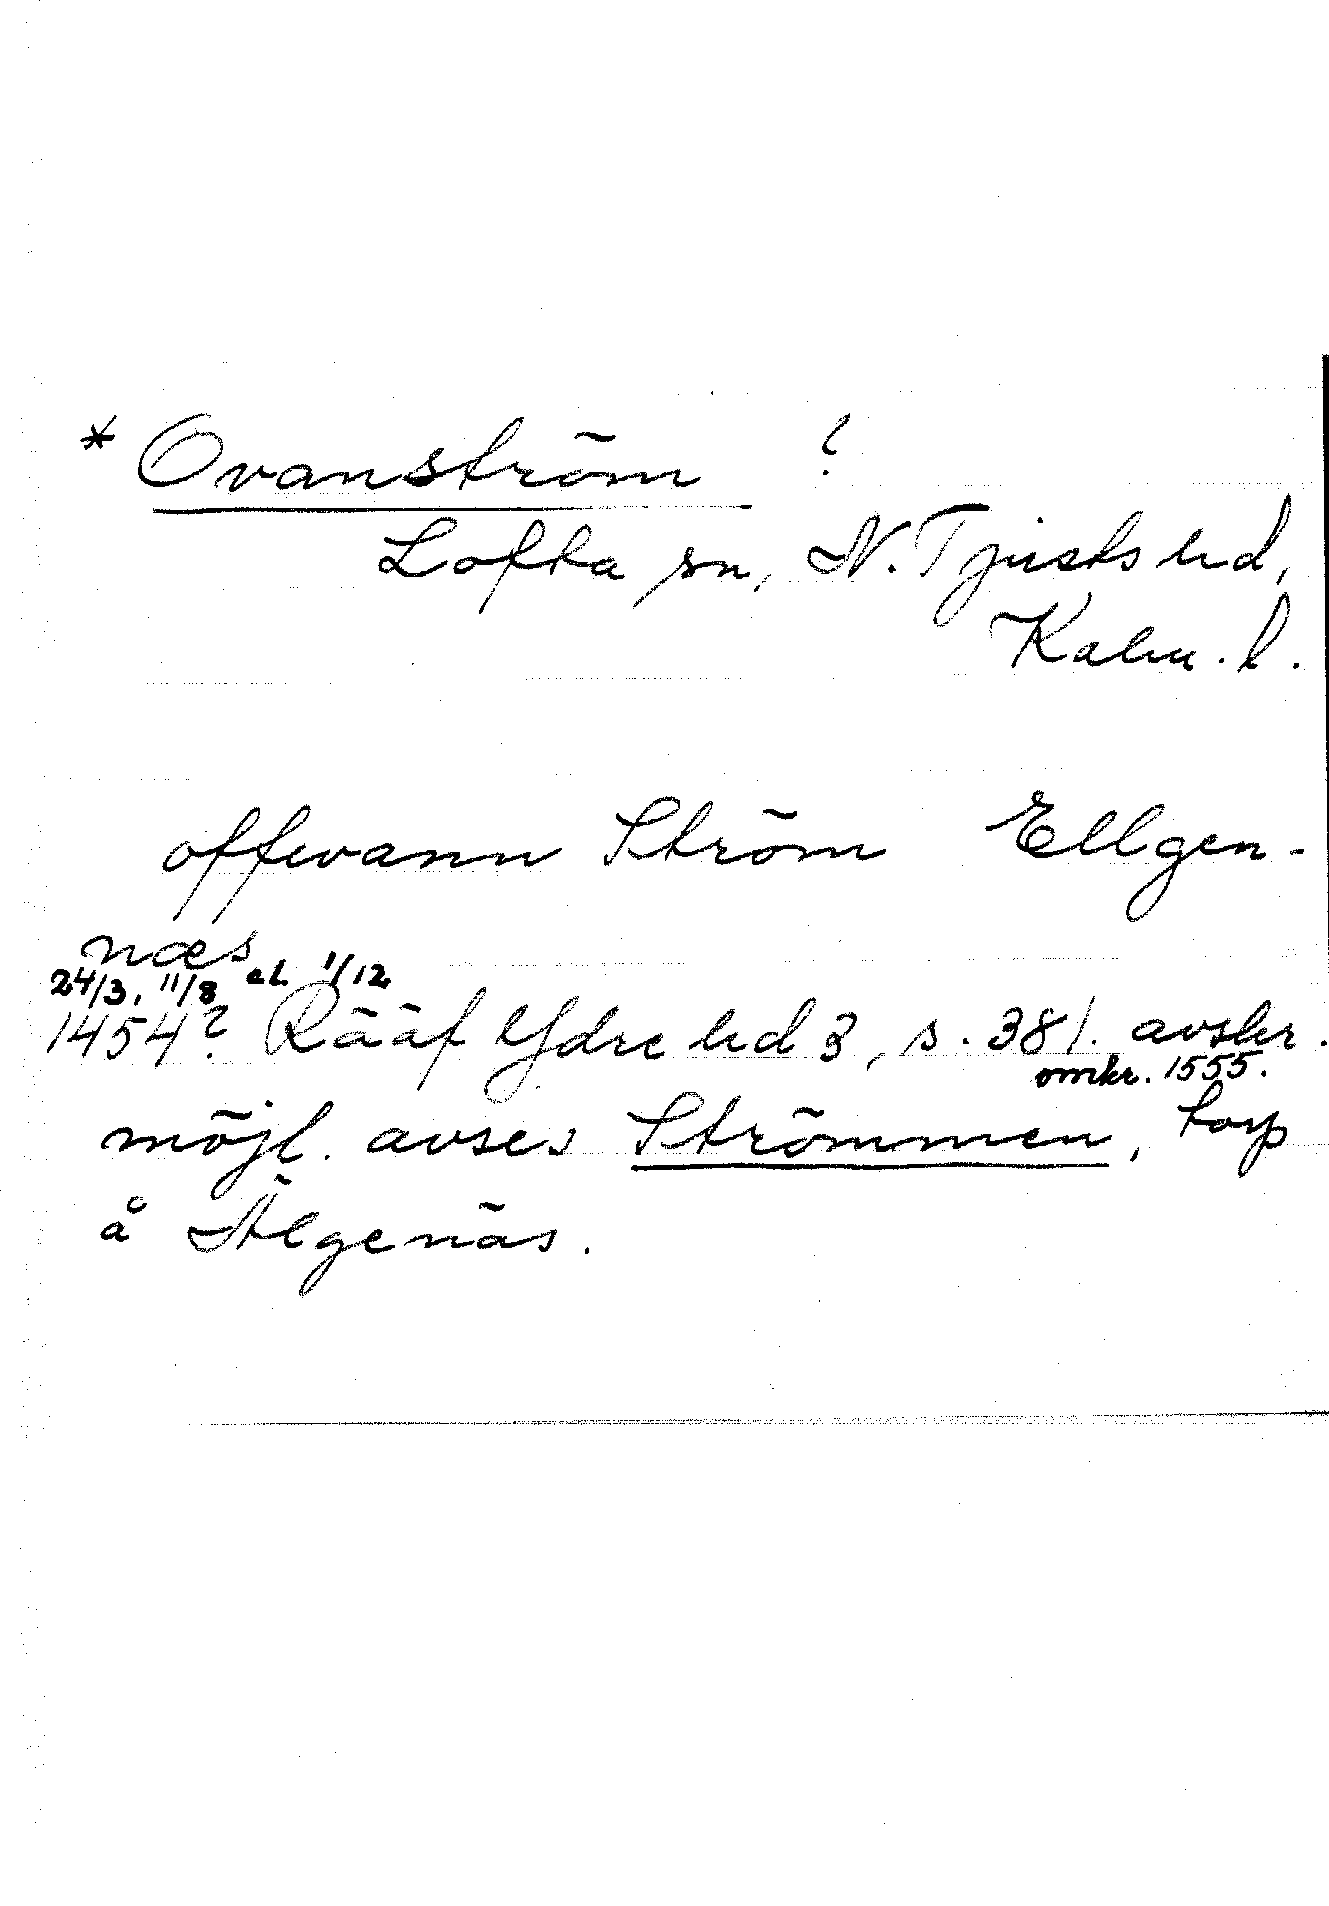 * Ovanström ?
Lofta sn, N. Tjusts hd,
Kalm. l.
offwann Ström Ellgen-
næs
24/3, 11/8 el. 1/12
1454? Rääf Ydre hd 3, s. 381. avskr.
omkr. 1555.
möjl. avses Strömmen, torp
å Älgenäs.